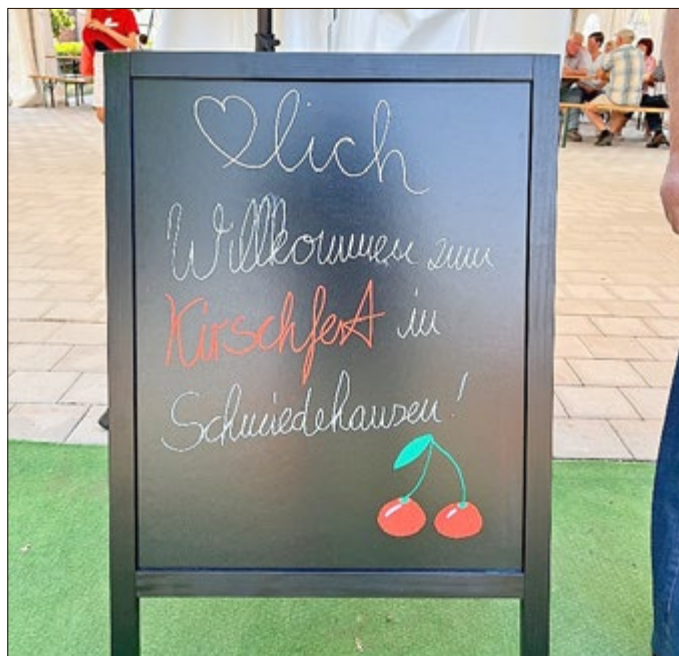 ♡lich
Willkommen zum
Kirschfest in
Schmiedehausen!